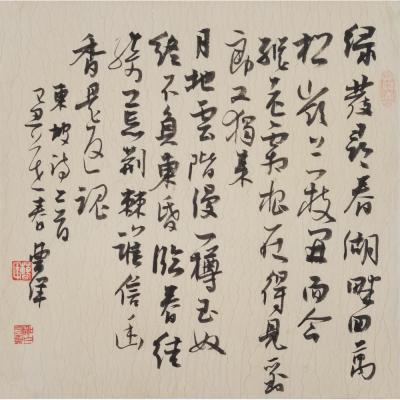 绿髮尋春湖畔回萬
松嶺上一枝開而今
縱老霜根在得見劉
郎又獨來
月地雲階漫一樽玉奴
終不負東昏臨春結
綺荒荆棘誰信幽
香是返魂
東坡詩二首
己丑春